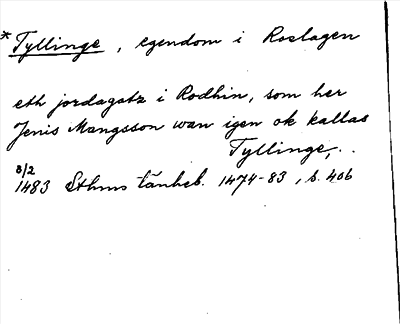 * Tyllinge, egendom i Roslagen
eth jordagotz i Rodhin, som her
Jenis Mangsson wan igen ok kallas
Tyllinge, . .
8/2
1483 Sthms tänkeb. 1474-83, s. 406